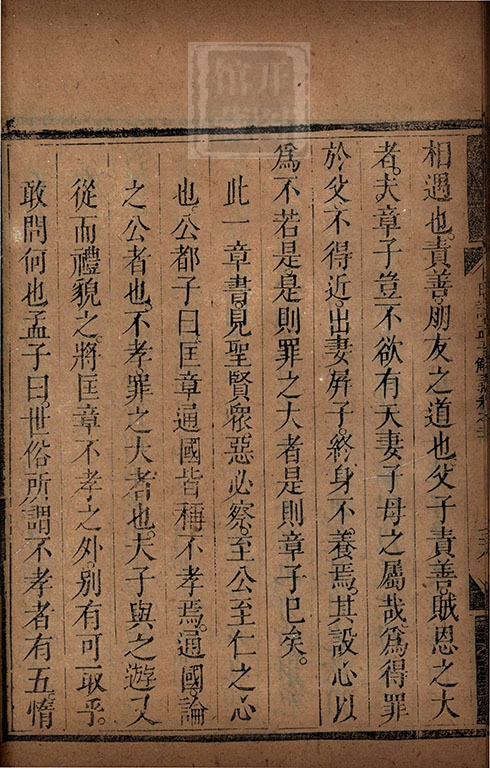 相遇也。責善。朋友之道也。父子責善。賊恩之大
者。夫章子豈不欲有夫妻子母之屬哉。爲得罪
於父不得近。出妻屏子。終身不養焉。其設心以
爲不若是。是則罪之大者是則章子已矣。
此一章書。見聖賢衆惡必察。至公至仁之心
也。公都子曰匡章通國皆稱不孝焉。通國論
之公者也。不孝罪之大者也。夫子與之遊又
從而禮貌之。將匡章不孝之外。別有可取乎。
敢問何也孟子曰。世俗所謂不孝者有五惰